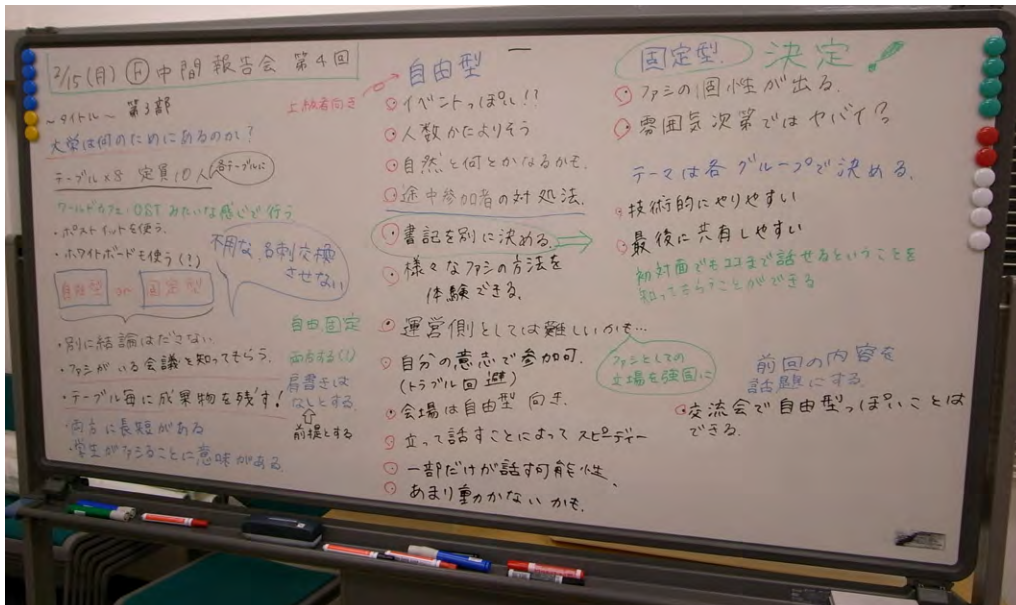 2/15(月) Ⓕ 中間報告会 第4回
～タイトル～ 第3部
大学は何のためにあるのか?
テーブル×8 定員10人 各テーブルに
ワールドカフェ・OSTみたいな感じで行う
・ポストイットを使う.
・ホワイトボードを使う(!?)
不用な名刺交換
させない
自由型 or 固定型
・別に結論はださない
・ファシがいる会議を知ってもらう.
・テーブル毎に成果物を残す!
・両方に長短がある
・学生がファシることに意味がある.
自由固定
両方する(!)
肩書きは
なしとする.
⇑
前提とする
上級者向き
自由型
イベントっぽい!?
人数かたよりそう
自然と何とかなるかも.
途中参加者の対処法.
書記を別に決める.
様々なファシの方法を
体験できる.
運営側としては難しいかも…
自分の意志で参加可.
(トラブル回避)
会場は自由型 向き.
立って話すことによってスピーディー
一部だけが話す可能性.
あまり動かないかも.
固定型. 決定!
ファシの個性が出る.
雰囲気次第ではヤバイ?
テーマは各グループで決める.
技術的にやりやすい
最後に共有しやすい
初対面でもココまで話せるということを
知ってもらうことができる
ファシとしての
立場を強固に
前回の内容を
話題にする.
交流会で自由型っぽいことは
できる.